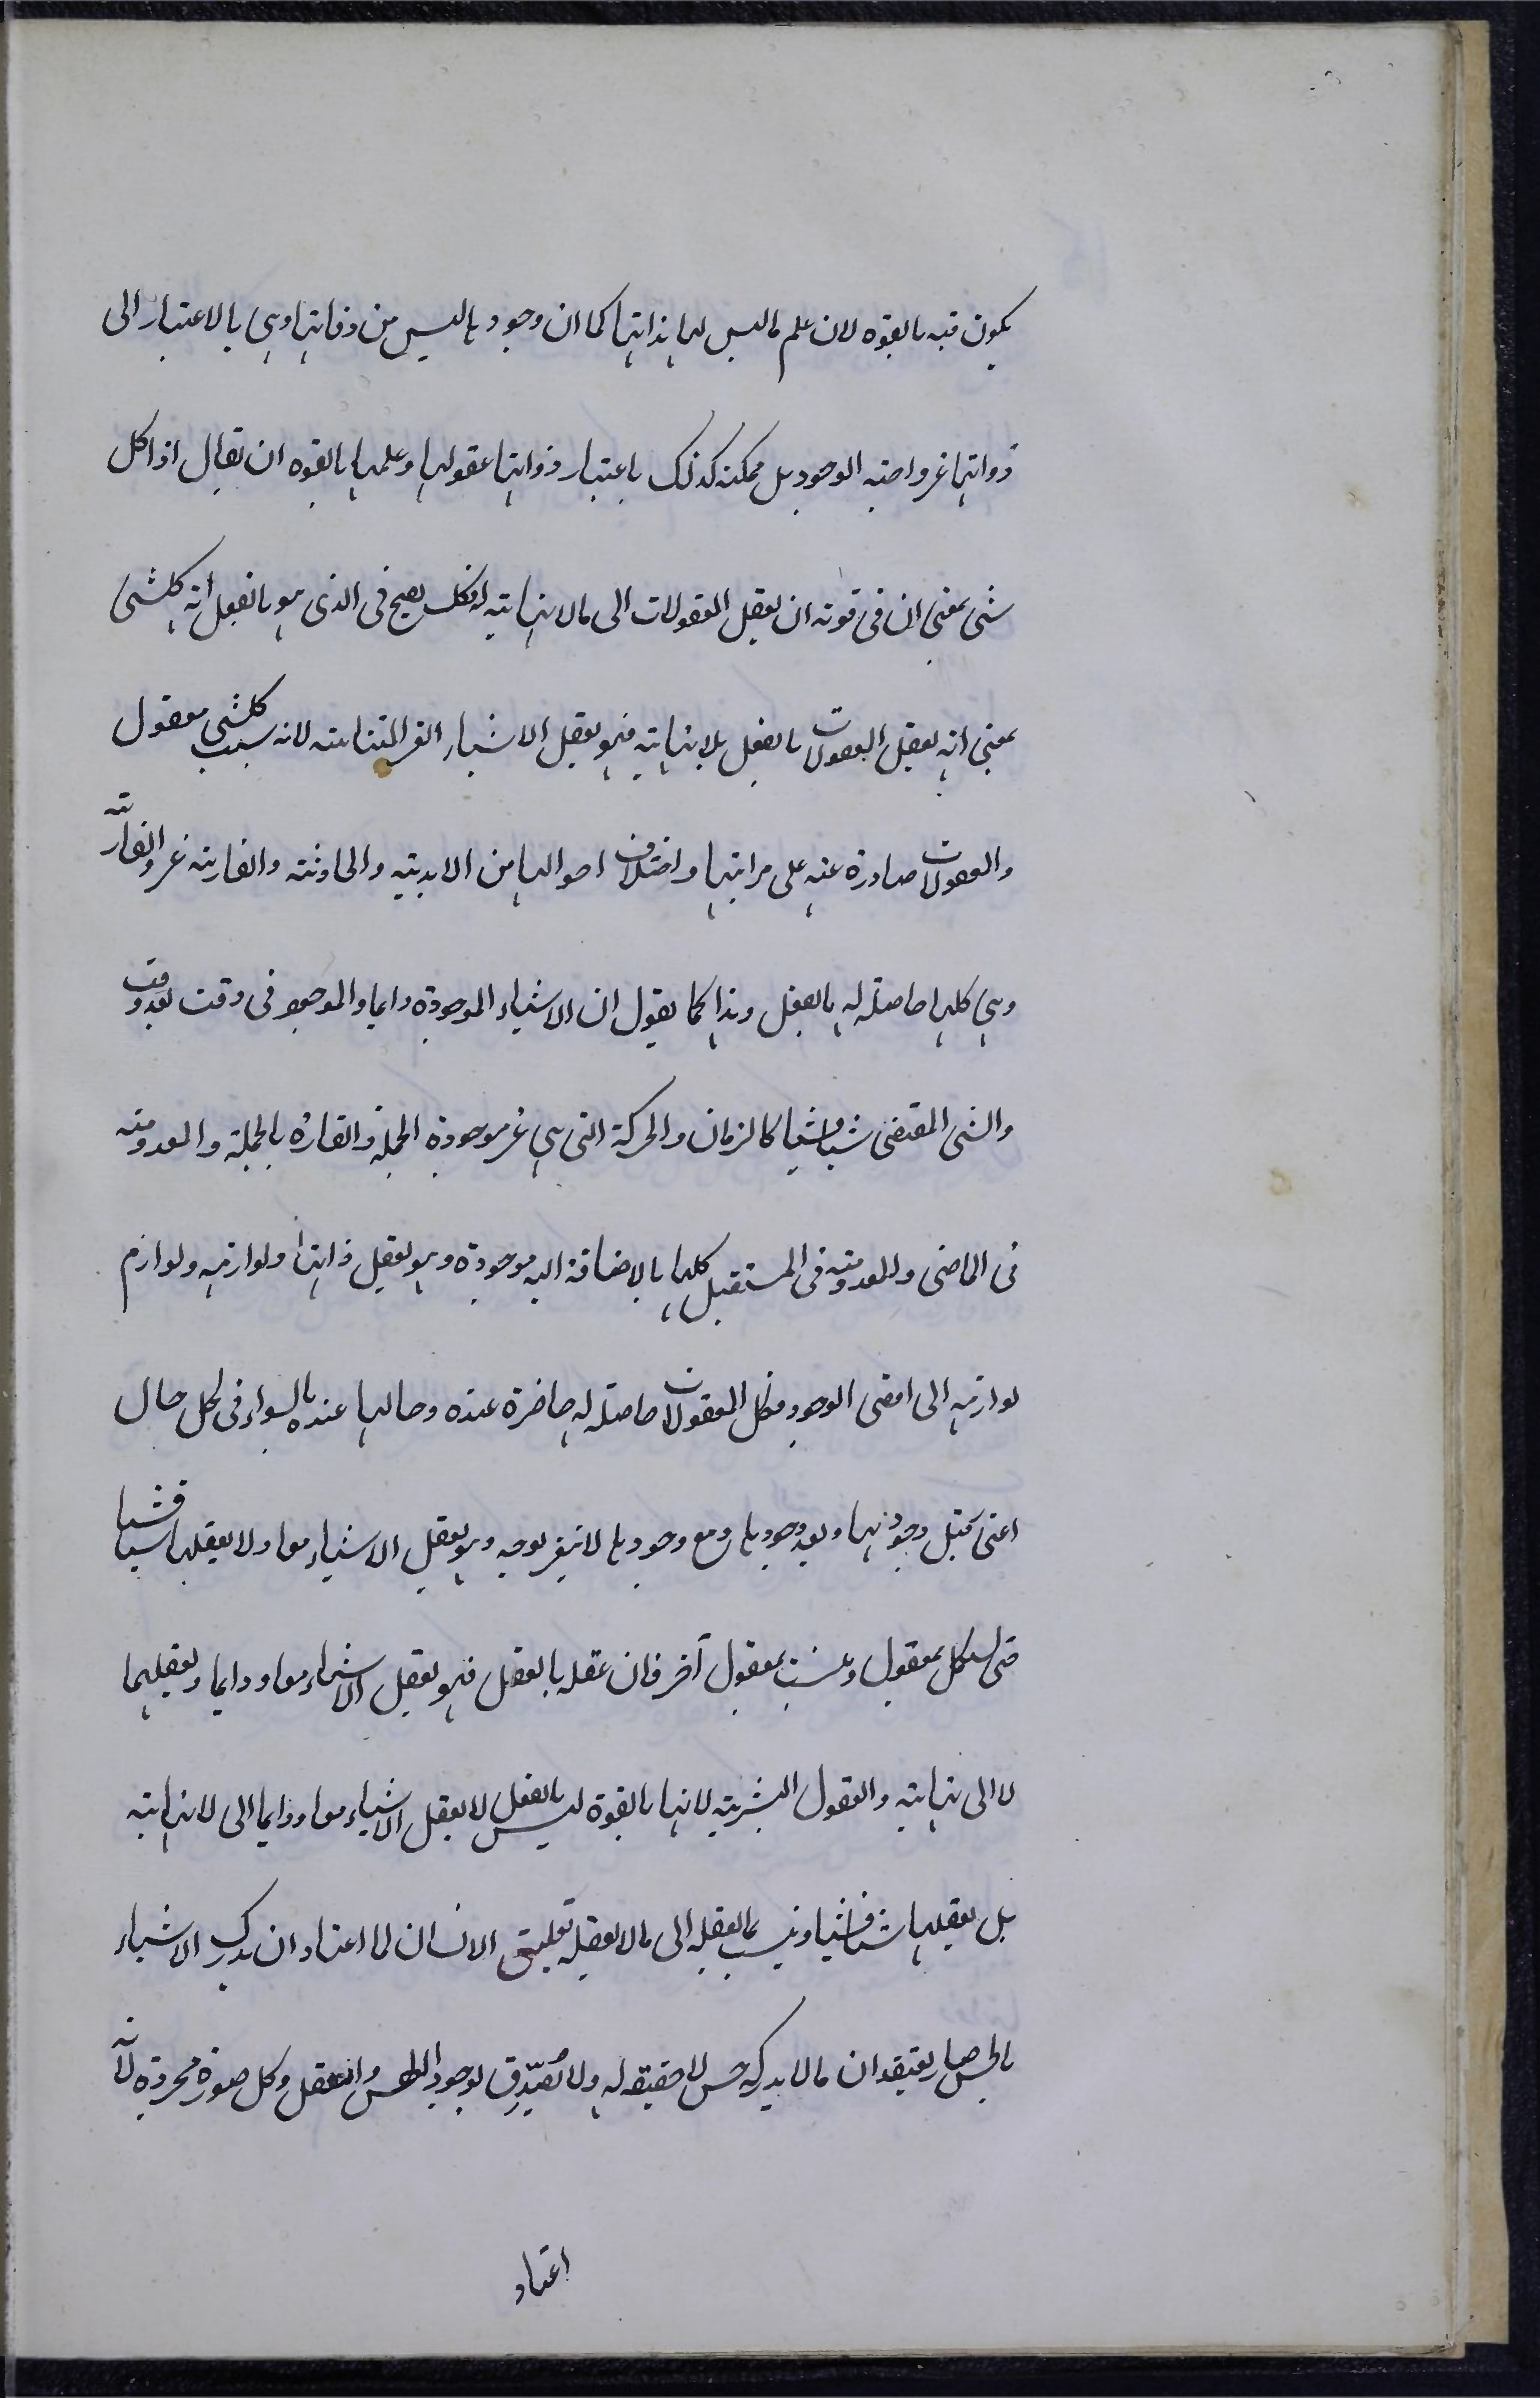 يكون فيه بالقوه لان علم ما ليس لها بذاتها كما ان وجودها ليس من ذواتها وهى بالاعتبار الى
ذواتها غير واجبه الوجود بل ممكنه كذلك باعتبار ذواتها عقولها وعلمها بالقوه ان يقال اذا كل
شى بمعنى ان فى قوته ان يعقل المعقولات الى مالانهايته له فكك يصح فى الذى هو بالفعل انه كلشى
بمعنى انه يعقل المعقولات بالفعل بلا نهايته فهو يعقل الاشياء الغير المتناهيته لانه سبب كلشى معقول
والمعقولات صادرة عنه على مراتبها واختلاف احوالها من الابديته والحادثته والقاريته وغير القارّته
وهى كلها حاصله له بالفعل وهذا كما يقول ان الاشياء الموجودة دايما والموجود فى وقت بعد وقت
والشى المقتضى شيا فشيا كالزمان والحركة التى هى غير موجودة الجملة والقاره بالجملة والمعدومته
فى الماضى والمعدومته فى المستقبل كلها بالاضافته اليه موجودة وهو يعقل ذاتها ولوازمه ولوازم
لوازمه الى اقصى الوجود فكل المعقولات حاصله له حاضرة عنده وحالها عنده بالسواء فى كل حال
اعنى قبل وجودها وبعد وجودها ومع وجودها لا تتغير بوجه وهو يعقل الاشياء معا ولا يعقلها شيا فشيا
حتى يستكمل بمعقول وينسب بمعقول آخر فان عقله بالفعل فهو يعقل الاشياء معا ودايما ويعقلها
لا الى نهايته والعقول البشريته لانها بالقوة ليس بالفعل لا يعقل الاشياء معا ودايما الى لا نهايته
بل يعقلها شيا فشيا وينسب بما يعقله الى ما لا يعقله تعليق الانسان لما اعتاد ان يدرك الاشياء
بالحس صار يعتقد ان ما لا يدركه حس لا حقيقه له ولا يُصَدِّق بوجود النفس والعقل وكل صورة مجردة لانّه
اعتاد